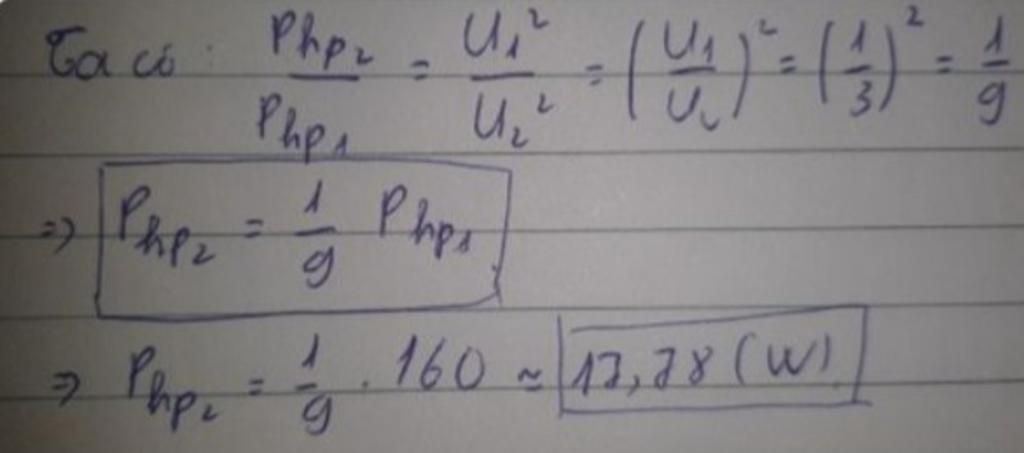 Ta có : Php₂ / Php₁ = U₁² / U₂² = (U₁ / U₂)² = (1/3)² = 1/9
=> Php₂ = 1/9 Php₁
=> Php₂ = 1/9 . 160 ≈ 17,78 (W)